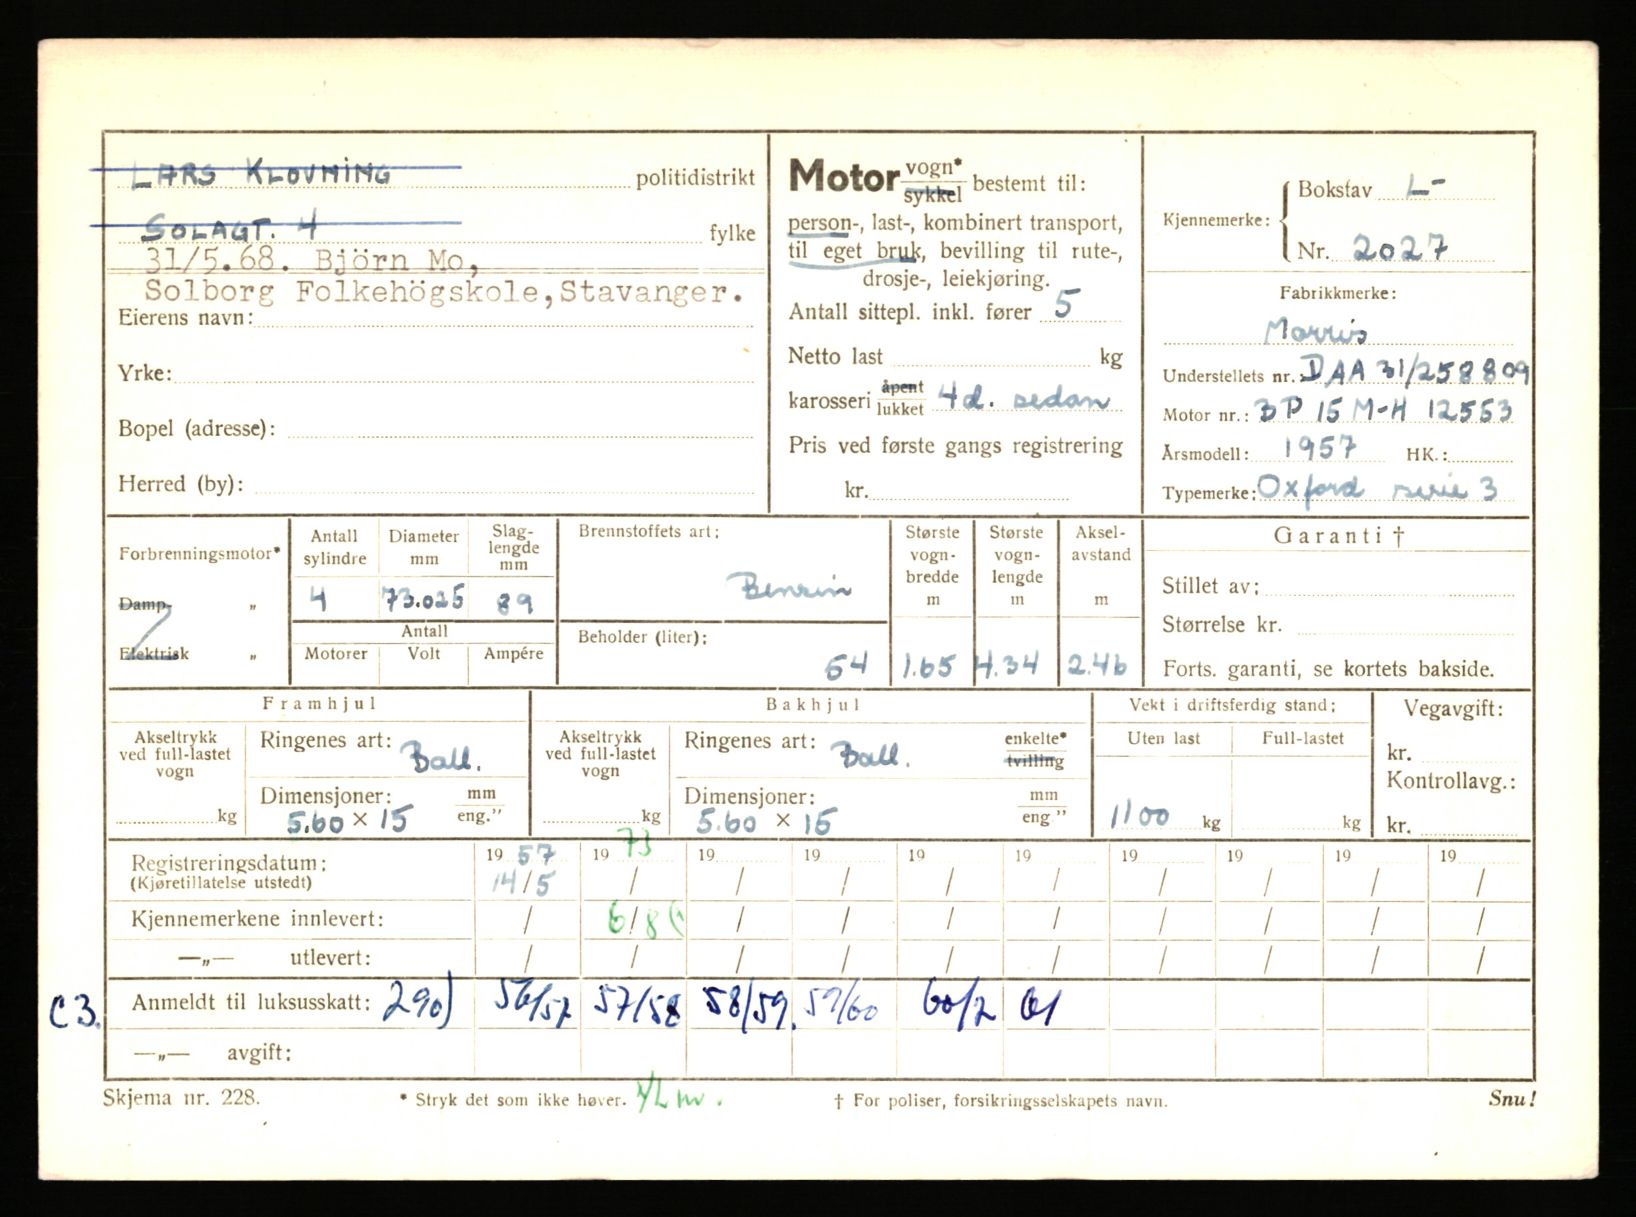 LARS KLOVNING politidistrikt
SOLAGT. 4 fylke
31/5.68. Björn Mo,
Solborg Folkehögskole, Stavanger.
Eierens navn:
Yrke:
Bopel (adresse):
Herred (by):
Motor vogn* sykkel bestemt til:
person-, last-, kombinert transport,
til eget bruk, bevilling til rute-,
drosje-, leiekjøring.
Antall sittepl. inkl. fører 5
Netto last kg
karosseri åpent lukket 4d. sedan
Pris ved første gangs registrering
kr.
Kjennemerke: Bokstav L-
Nr. 2027
Fabrikkmerke:
Morris
Understellets nr.: DAA 31/258809
Motor nr.: BP 15 M-H 12553
Årsmodell: 1957 HK.:
Typemerke: Oxford serie 3
Forbrenningsmotor*
Damp- „
Elektrisk „
Antall sylindre
Diameter mm
Slag-lengde mm
4 73.025 89
Antall
Motorer Volt Ampére
Brennstoffets art:
Bensin
Beholder (liter):
54
Største vogn-bredde m
Største vogn-lengde m
Aksel-avstand m
1.65 4.34 2.46
Garanti †
Stillet av:
Størrelse kr.
Forts. garanti, se kortets bakside.
Framhjul
Akseltrykk ved full-lastet vogn
kg
Ringenes art: Ball.
Dimensjoner: mm eng."
5.60 × 15
Bakhjul
Akseltrykk ved full-lastet vogn
kg
Ringenes art: Ball. enkelte* tvilling
Dimensjoner: mm eng "
5.60 × 15
Vekt i driftsferdig stand:
Uten last Full-lastet
1100 kg kg
Vegavgift:
kr.
Kontrollavg.:
kr.
Registreringsdatum: 19 57 19 73 19 19 19 19 19 19 19 19
(Kjøretillatelse utstedt) 14/5 / / / / / / / / /
Kjennemerkene innlevert: / 6/8 / / / / / / / /
—„— utlevert: / / / / / / / / / /
C 3. Anmeldt til luksusskatt: 290) 56/57 57/58 58/59. 59/60 60/2 61
—„— avgift:
Skjema nr. 228. * Stryk det som ikke høver. † For poliser, forsikringsselskapets navn. Snu!